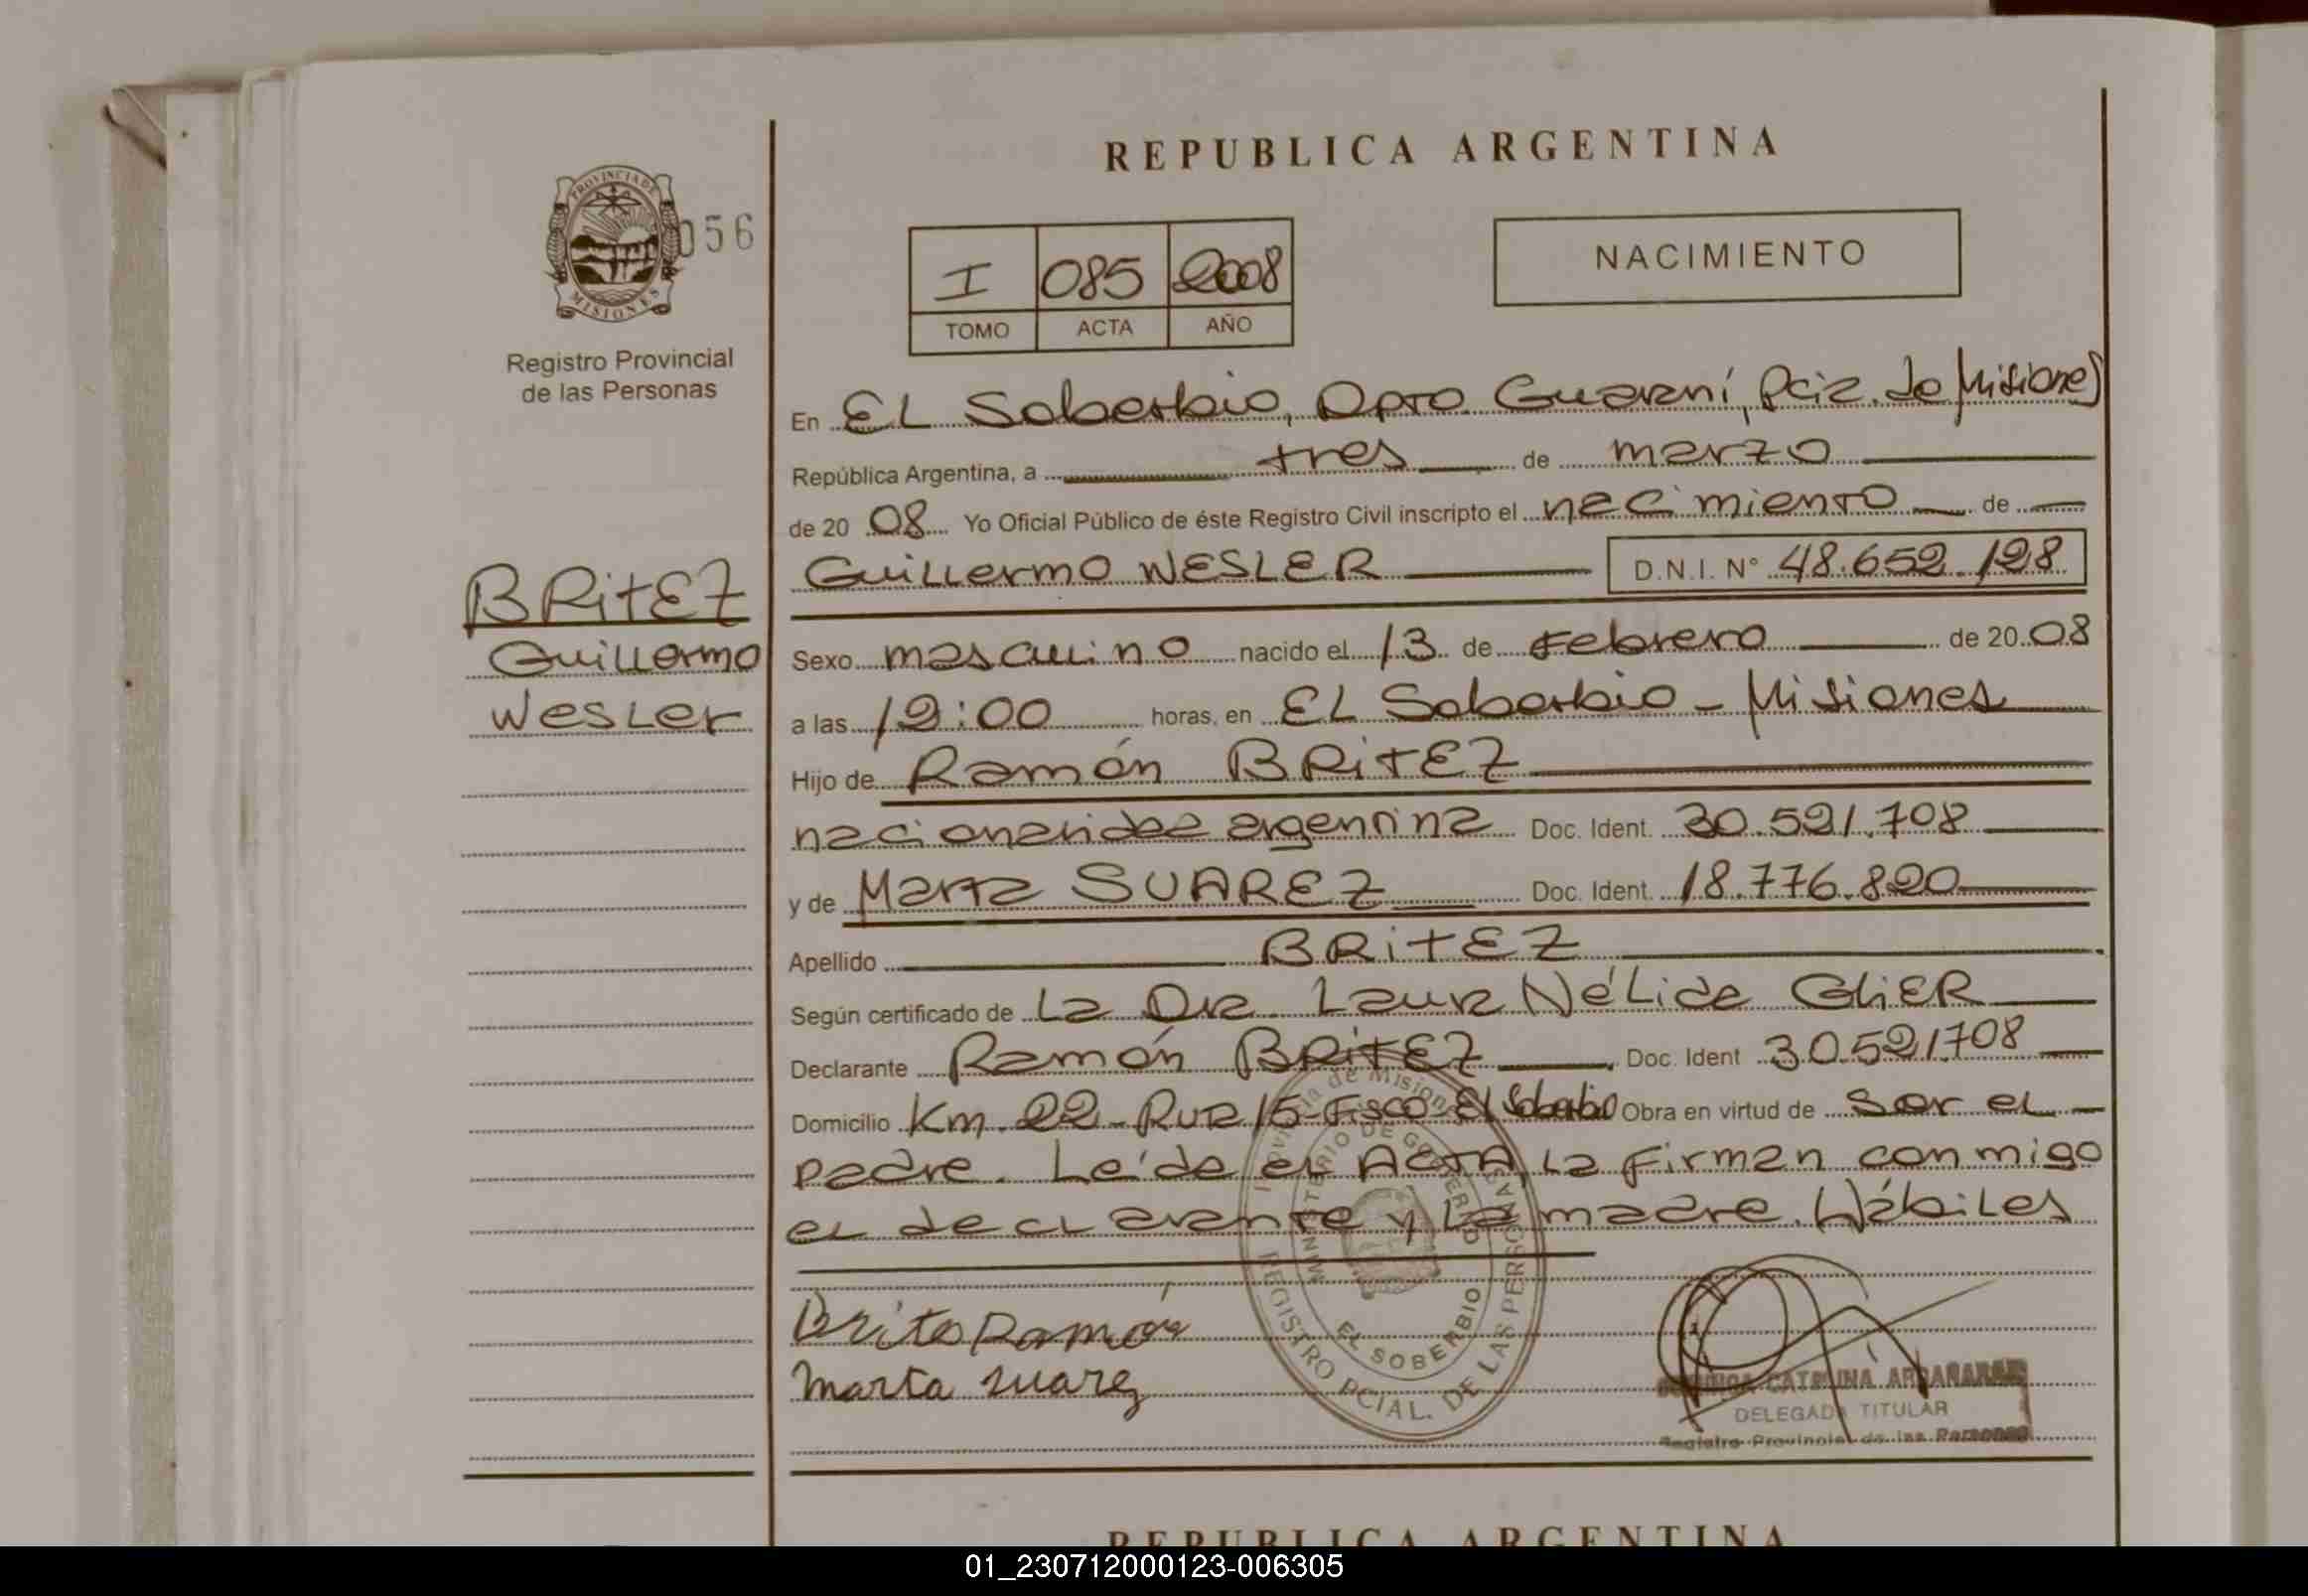 REPUBLICA ARGENTINA
PROVINCIA DE
MISIONES
056
Registro Provincial
de las Personas
I 085 2008
TOMO ACTA AÑO
NACIMIENTO
En EL Soberbio, Dpto. Guaraní, Pcia. de Misiones
República Argentina, a tres de marzo
de 2008 Yo Oficial Público de éste Registro Civil inscripto el nacimiento de
Guillermo WESLER D.N.I. N° 48.652.128
BRITEZ
Guillermo
Wesler
Sexo masculino nacido el 13 de Febrero de 2008
a las 12:00 horas, en EL Soberbio - Misiones
Hijo de Ramón BRITEZ
nacionalidad argentina Doc. Ident. 30.521.708
y de Marta SUAREZ Doc. Ident. 18.776.820
Apellido BRITEZ
Según certificado de La Dra. Laura Nélida GLIER
Declarante Ramón BRITEZ Doc. Ident 30.521708
Domicilio Km. 22 - Ruta 15 - Fisco - El Soberbio Obra en virtud de Ser el
padre. Leída el ACTA, La Firman conmigo
el declarante y La madre. Hábiles
Provincia de Misiones
MINISTERIO DE GOBIERNO
EL SOBERBIO
REGISTRO PCIAL. DE LAS PERSONAS
Brites Ramón
Marta Suarez
CATALINA
DELEGADA TITULAR
Registro Provincial de las Personas
REPUBLICA ARGENTINA
01_230712000123-006305